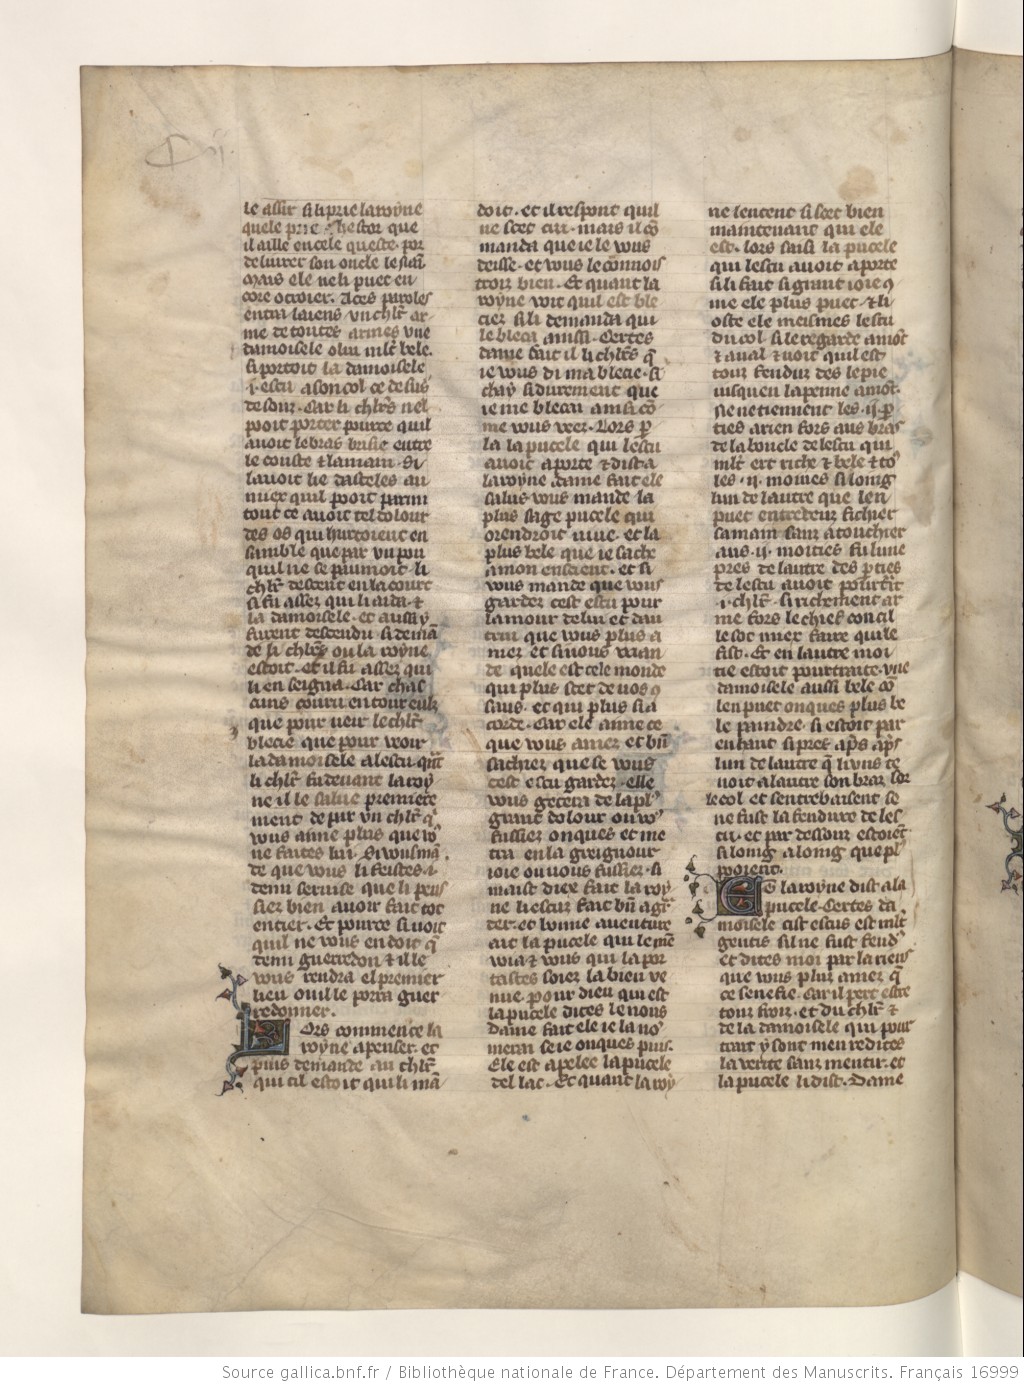 C ij.
le assit si li prie la royne
quele prie hestor que
il aille en cele queste por
deliurer son oncle le sent
Mais ele ne li puet en
core otroier. Aces paroles
entra laiens vn chlr ar
me de toutes armes vne
damoisele o lui mlt bele.
si portoit la damoisele
.i. escu a son col ce de sus
desouz. Car li chlrs nel
pooit porter pource quil
auoit le bras brisie entre
le couste et la main. Si
lauoit lie dasteles au
miex quil pooit parmi
tout ce auoit tel dolour
des os qui hurtoient en
samble que par vn pou
quil ne se paumoit. li
chlrs descent en la court
si fu assez qui li aida. et
la damoisele. et aussi y
furent descendu si demā
de li chlrs ou la royne
estoit. et il fu assez qui
li enseigna. Car chas
cuns couru entour eulz
que pour ueir le chlr
blecie que pour veoir
la damoisele a lescu. qāt
li chlr fu deuant la roy
ne il le salue premiere
ment de par vn chlr q̄
vous aime plus que vo9
ne faites lui. Si vus mā
de que vous li feistes .i.
demi seruise que li peus
siez bien auoir fait tot
entier. Et pource si voit
quil ne vous en doit q̄
demi guerredon et il le
vous rendra el premier
lieu ou il le porra guer
redonner.
Lors commence la
royne a penser. et
puis demande au chlr
qui cil estoit qui li mā
doit. et il respont quil
ne scet cui. mais il cō
manda que ie le vous
deisse. et vous le connois
triez bien. Et quant la
royne voit quil est ble
ciez si li demanda qui
le bleca ainssi. Certes
dame fait il li chlrs q̄
ie vous di ma blecie. si
chay si durement que
ie me blecai ainsi cō
me vous veez. Lors p̄
la la pucele qui lescu
auoit aporte et dist a
la royne. dame fait ele
salus vous mande la
plus sage pucele qui
orendroit viue. et la
plus bele que ie sache
a mon escient. et si
vous mande que vous
gardez cest escu pour
lamour de lui et dau
trui que vous plus a
mez et si uous mande
de quele est cele monde
qui plus scet de uos 9
saus. et qui plus si a
corde. Car ele aime ce
que vous amez et bn̄
sachiez que se vous
cest escu gardez. elle
vous getera de la pl9
grant dolour ou vo9
fussiez onques et me
tra en la greignour
ioie ou vous fussiez. si
maist diex fait la roy
ne li escuz fait bn̄ a gar
der. et bonne auenture
ait la pucele qui le me
uoia et vous qui la por
tastes soiez la bien ve
nue. pour dieu qui est
la pucele dites le nous
dame fait ele ie la no
merai se ie onques puis.
Ele est apelee la pucele
del lac. Et quant la roy
ne lentent si scet bien
maintenant qui ele
est. lors saisi la pucele
qui lescu auoit aporte
si li fait si grant ioie 9
me ele plus puet. et li
oste ele meismes lescu
du col si le regarde amōt
et aual et uoit quil est
touz fenduz des le pie
iusquen la penne amōt.
Ne ne tiennent les .ij. p̄
ties a rien fors aus bras
de la boucle de lescu qui
mlt ert riche et bele et to9
les .ij. moities si loing
lun de lautre que len
puet entredeux fichier
sa main sanz atouchier
aus .ij. moities su lune
pres de lautre des p̄ties
de lescu auoit pourtrait
.i. chlr. si richement ar
me fors le chief con cil
le sot miex faire qui le
fist. Et en lautre moi
tie estoit pourtraite vne
damoisele aussi bele cō
len puet onques plus be
le paindre. si estoit par
en haut si pres aps aps
lun de lautre q̄ li vns te
noit a lautre son braz sor
le col et sentrebaisent se
ne fust la fendure de les
cu. et par dessouz estoiēt
si loing a loing que pl9
pooient.
Et la royne dist a la
pucele. Certes da
moisele cist escus est mlt
gentis sil ne fust fendus
et dites moi par la riens
que vous plus amez q̄
ce senefie. Car il pert estre
touz froiz. et du chlr et
de la damoisele qui pour
trait y sont men redites
la verite sanz mentir. et
la pucele li dist. Dame
Source gallica.bnf.fr / Bibliothèque nationale de France. Département des Manuscrits. Français 16999